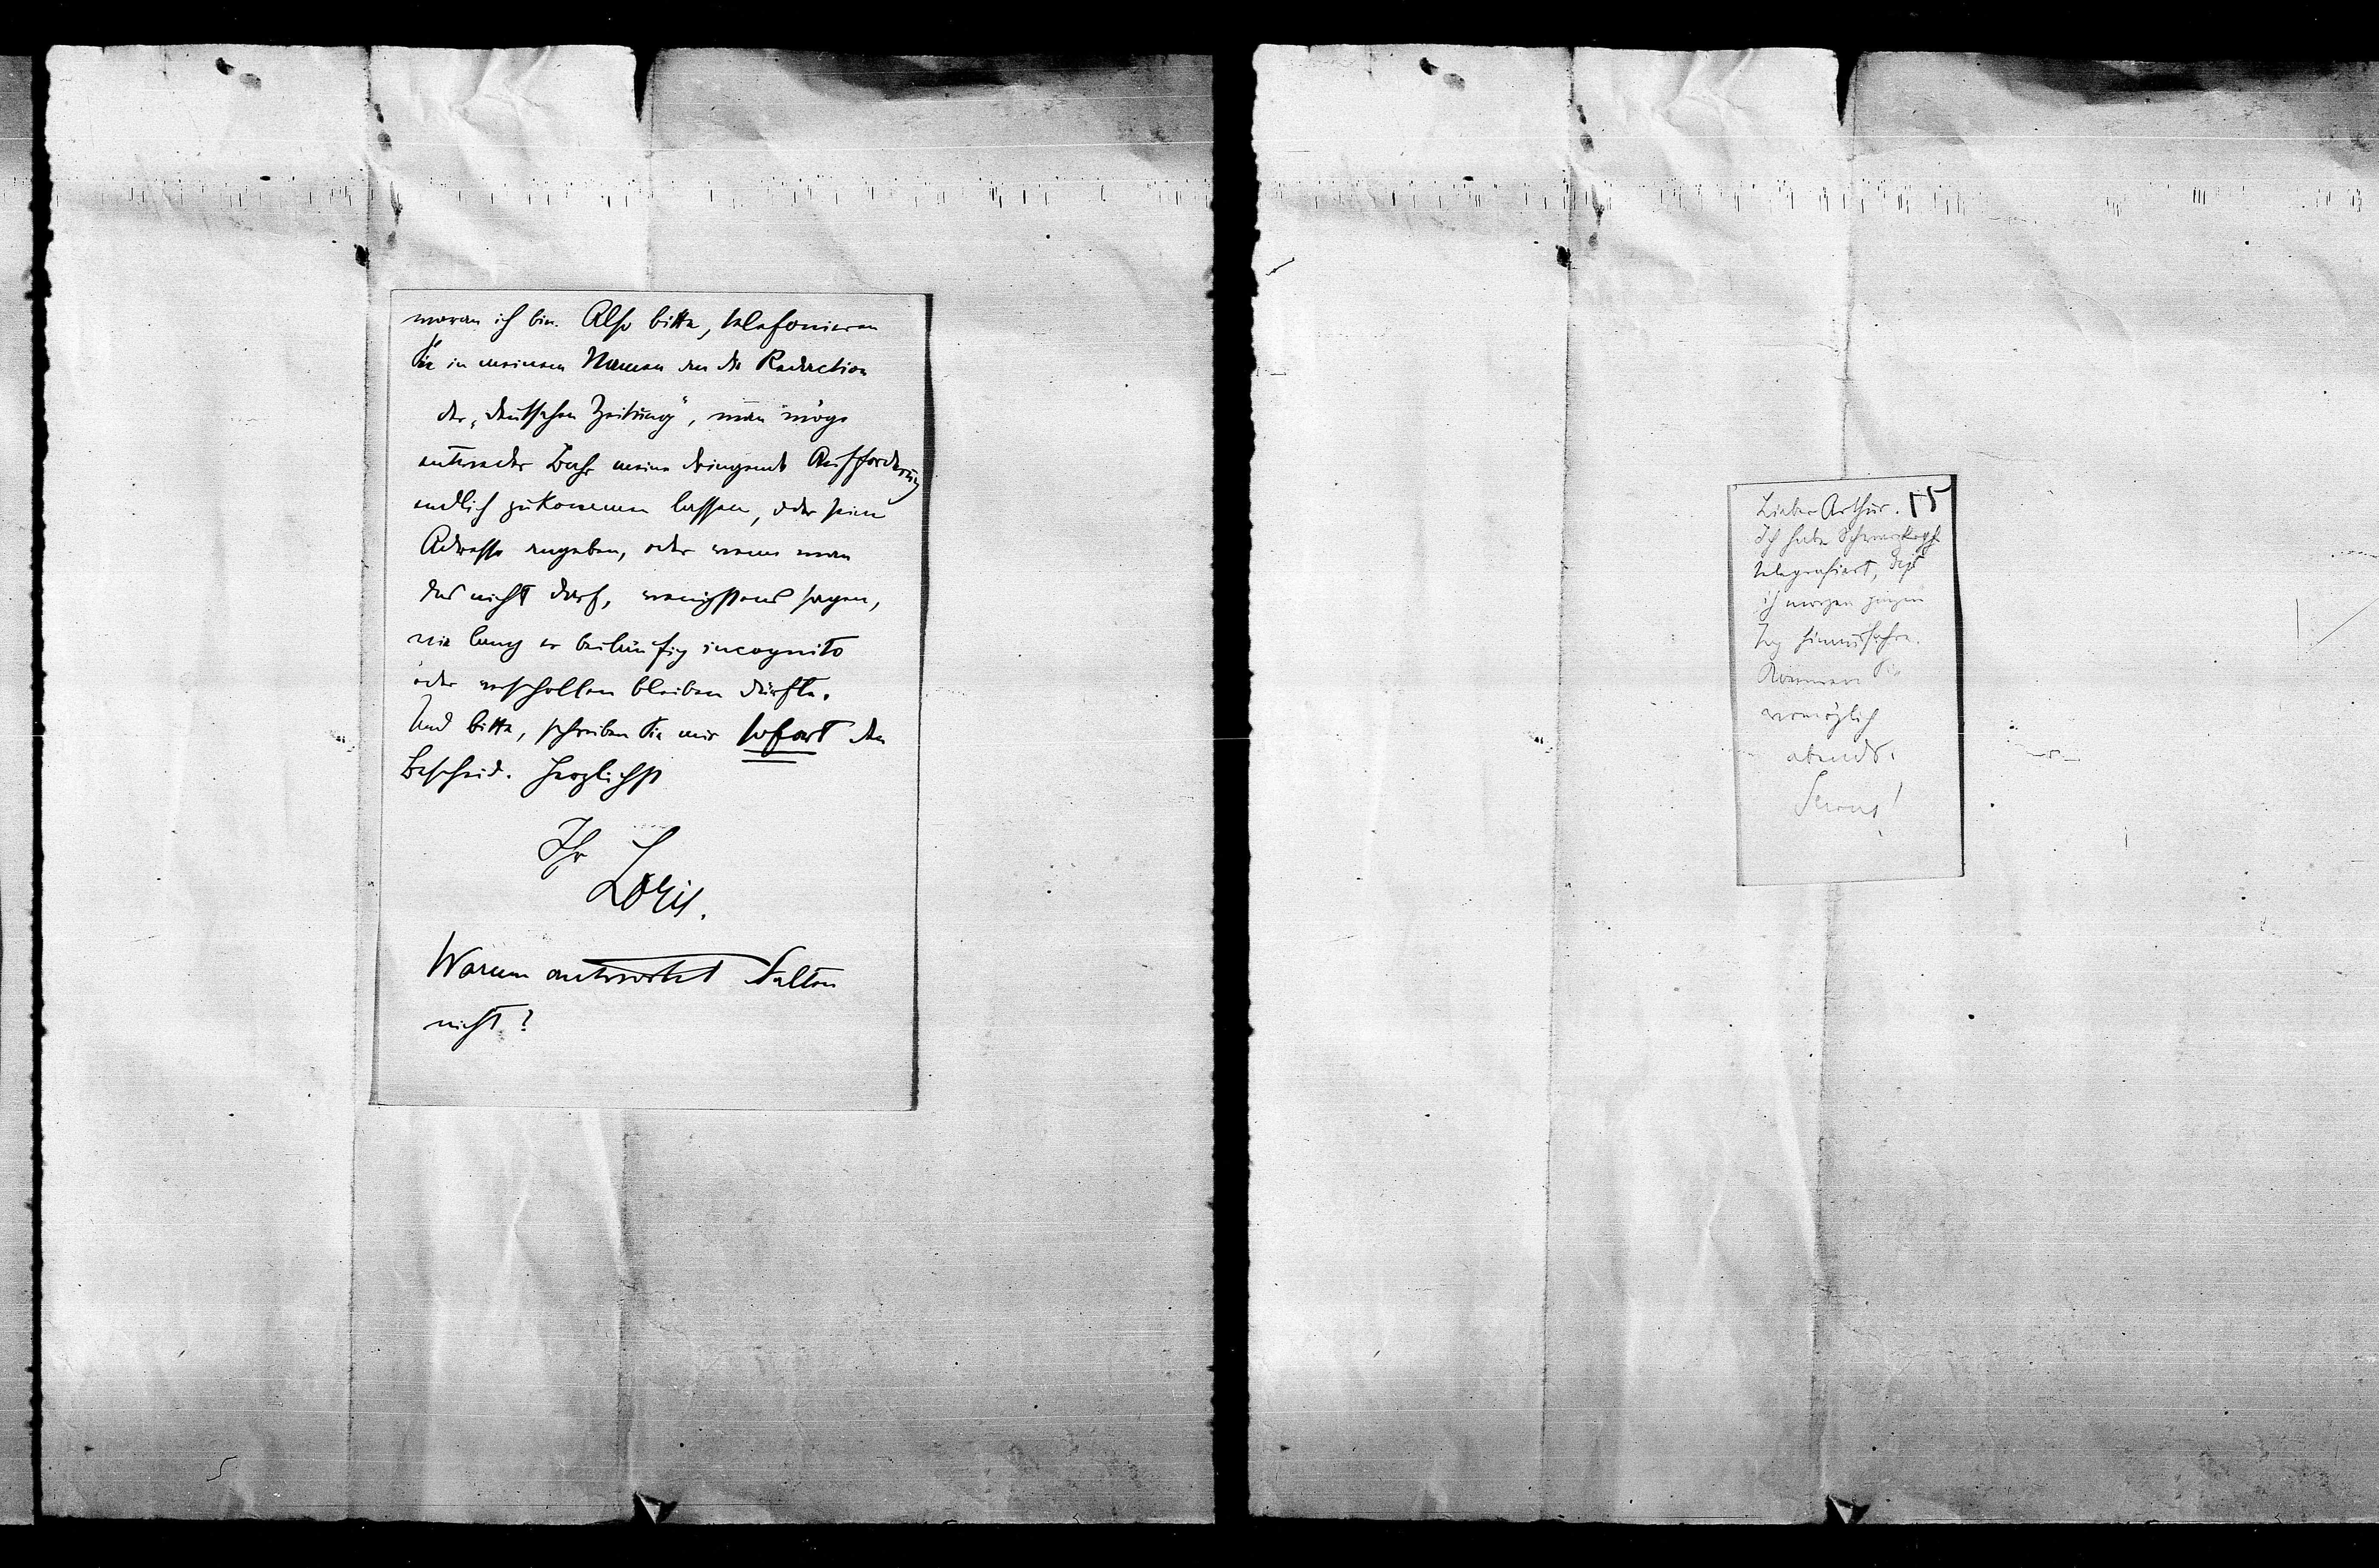 woran ich bin. Also bitte, telefonieren
Sie in meinem Namen an die Redaction
der „Deutschen Zeitung“, man möge
entweder Bahr meine dringende Aufforderung
endlich zukommen lassen, oder seine
Adresse angeben, oder wenn man
das nicht darf, wenigstens sagen,
wie lang er beiläufig incognito
oder verschollen bleiben dürfte.
Und bitte, schreiben Sie mir sofort den
Bescheid. Herzlichst
Ihr
Loris.
Warum antwortet Salten
nicht?
Lieber Arthur. 55
Ich habe Schwarzkopf
telegrafiert, daß
ich morgen
hinausfahre.
Kommen Sie
womöglich
abends.
Servus!